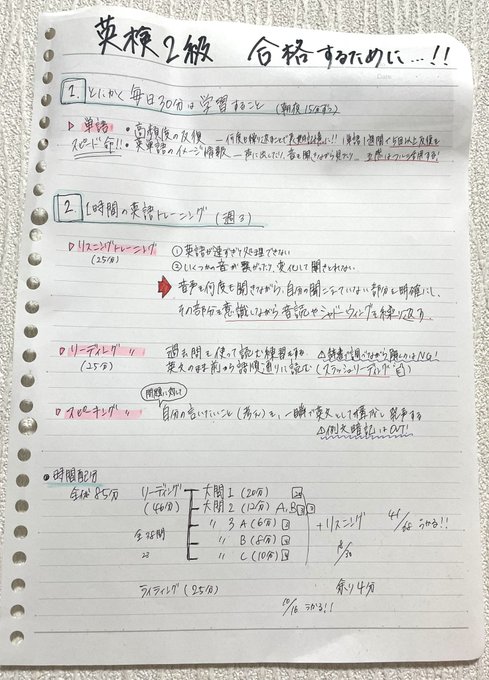 英検2級 合格するために…!!
Date
1. とにかく毎日30分は学習すること (朝夜15分ずつ)
▷ 単語 ・高頻度の反復 ― 何度も繰り返すことで長期記憶に!! 1単語1週間で5回以上反復を
スピード命!! ・英単語のイメージ情報 ― 声に出したり、音を聞きながら見たり 五感はフル活用する!
2. 1時間の英語トレーニング (週3)
▷ リスニングトレーニング ① 英語が速すぎて処理できない
(25分) ② いくつかの音が繋がったり、変化して聞きとれない
➡ 音声を何度も聞きながら、自分の聞こえていない部分を明確にし、
その部分を意識しながら音読やシャドーウィングを繰り返す
▷ リーディング 〃 過去問を使って読む練習をする △辞書で調べながら解くのはNG!
(25分) 英文のまま前から語順通りに読む (スラッシュリーディング)
問題に対して
▷ スピーキング 〃 自分の言いたいこと (考え) を、一瞬で英文として構成し発声する
△例文暗記はOUT!
・時間配分
全体85分 リーディング 大問1 (20分) 20
(46分) 大問2 (12分) A,B 3 3
全38問 〃 3 A (6分) 3 +リスニング うかる!!
23 〃 B (8分)
〃 C (10分)
ライティング (25分) 余り4分
10/16 うかる!!